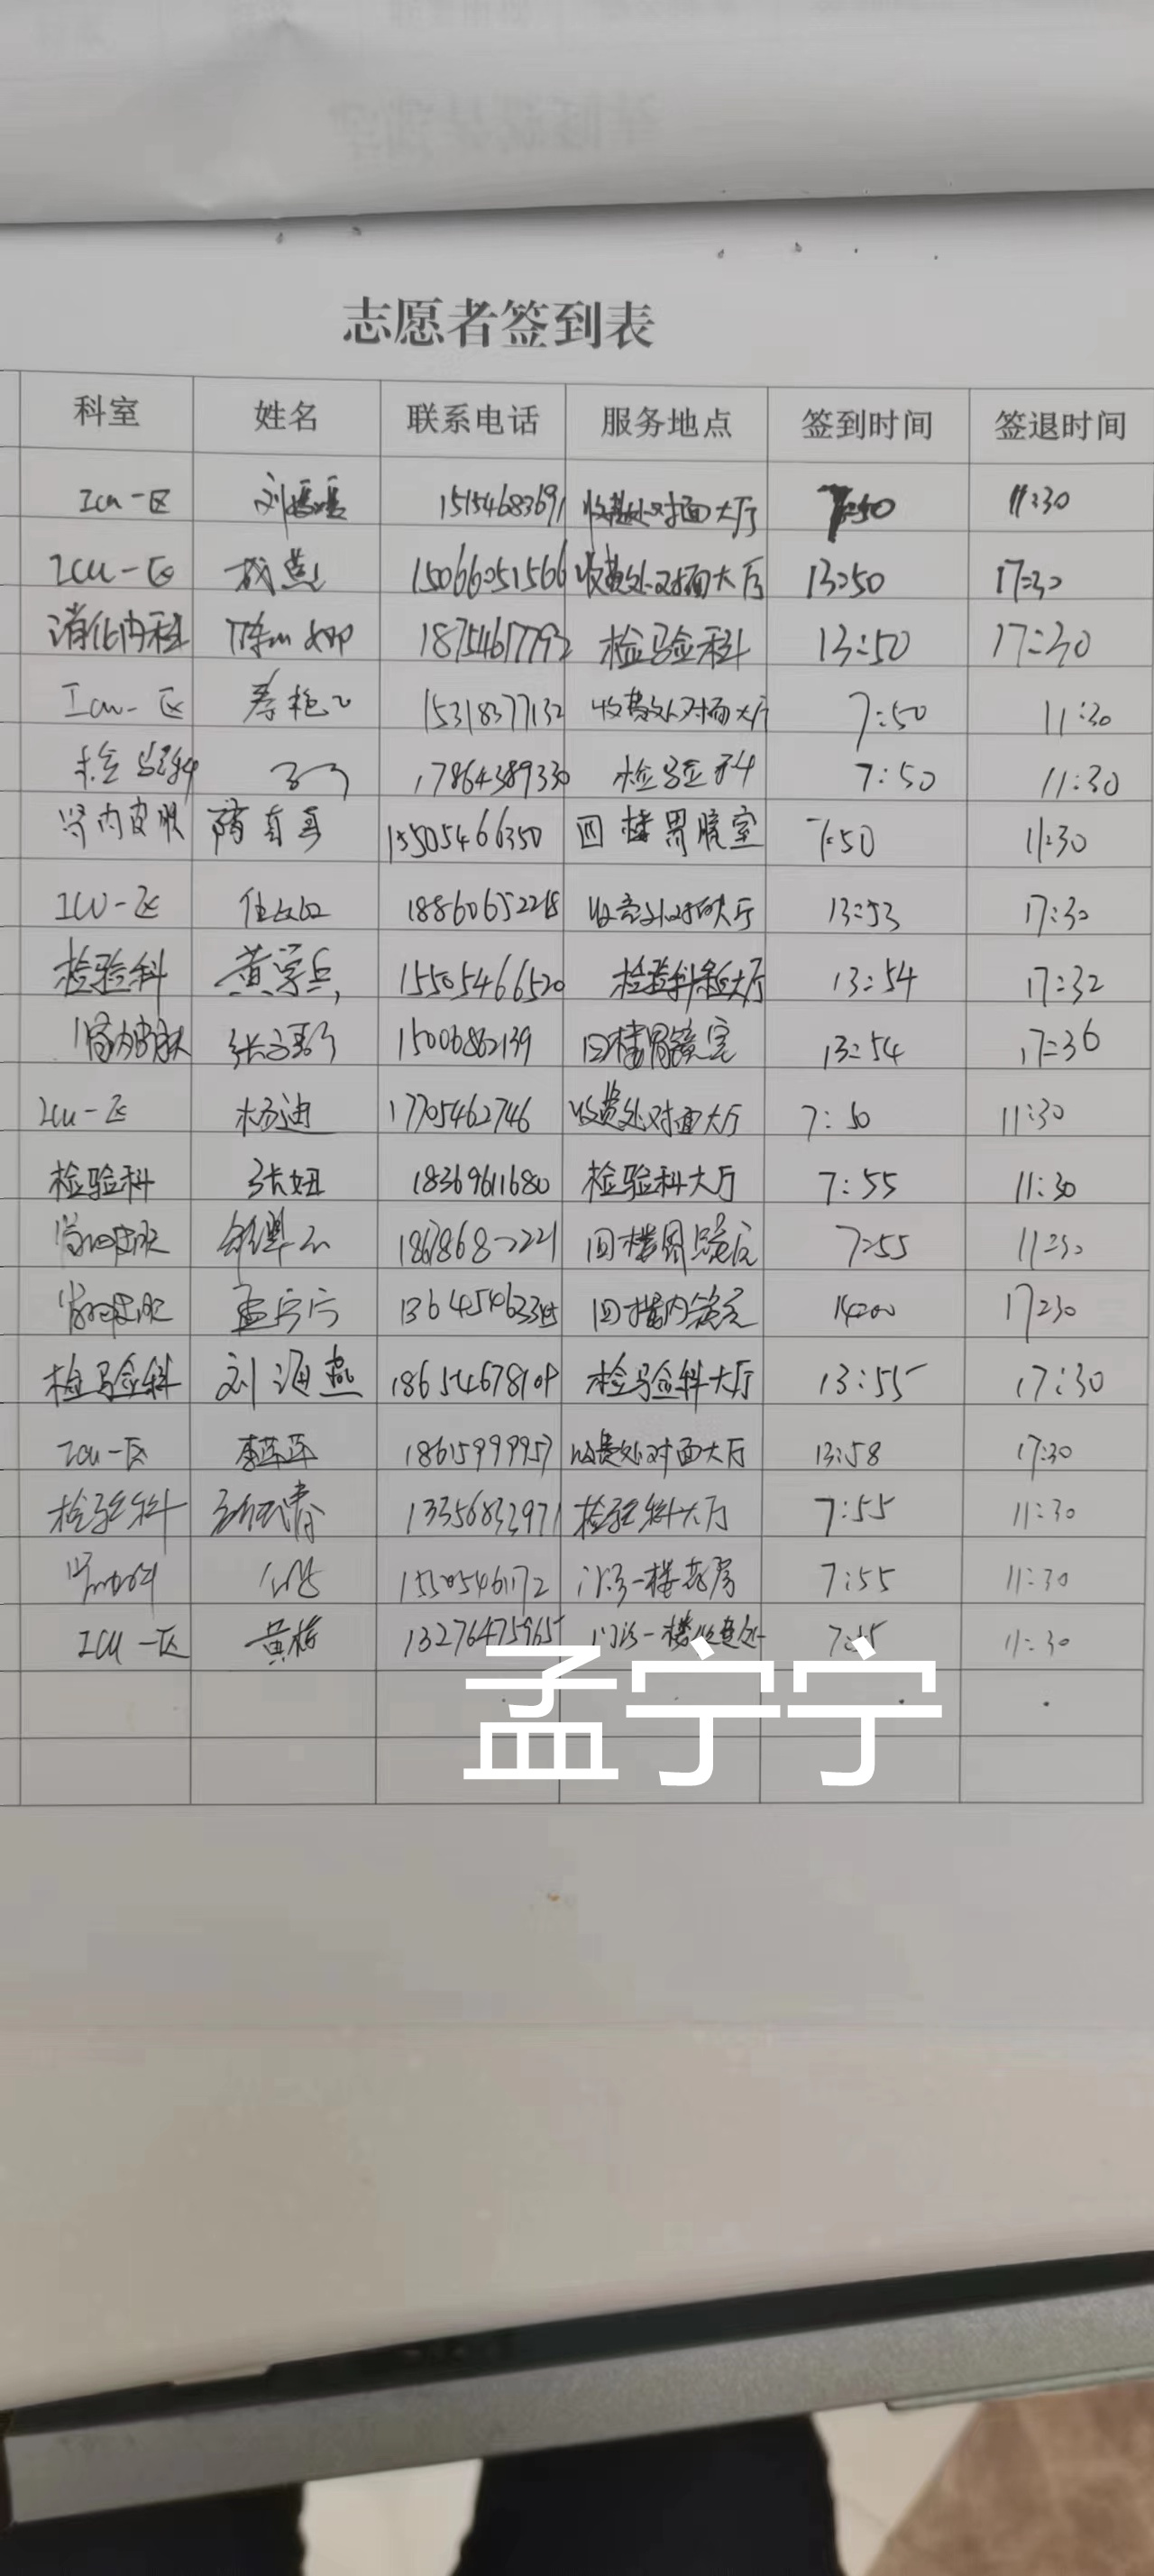 志愿者签到表
科室 姓名 联系电话 服务地点 签到时间 签退时间
ICU一区 刘媛媛 15154683691 收费处对面大厅 7:50 11:30
ICU一区 15066051566 收费处对面大厅 13:50 17:30
消化内科 18754617792 检验科 13:50 17:30
ICU一区 15318377132 收费处对面大厅 7:50 11:30
检验科 17864389330 检验科 7:50 11:30
肾内皮肤 15505466350 四楼胃镜室 7:50 11:30
ICU一区 收费处对面大厅 13:53 17:30
检验科 黄学兵 15505466520 检验科 大厅 13:54 17:32
肾内皮肤 15006862139 四楼胃镜室 13:54 17:36
ICU一区 杨迪 17705462746 收费处对面大厅 7:50 11:30
检验科 张妞 18369611680 检验科大厅 7:55 11:30
四楼胃镜室 7:55 11:30
孟宁宁 四楼内镜室 14:00 17:30
检验科 刘海燕 18654678109 检验科大厅 13:55 17:30
ICU一区 李萍萍 18615999957 收费处对面大厅 13:58 17:30
检验科 13356832971 检验科大厅 7:55 11:30
15505461172 门诊一楼药房 7:55 11:30
ICU一区 黄梅 13276475965 门诊一楼收费处 11:30
孟宁宁